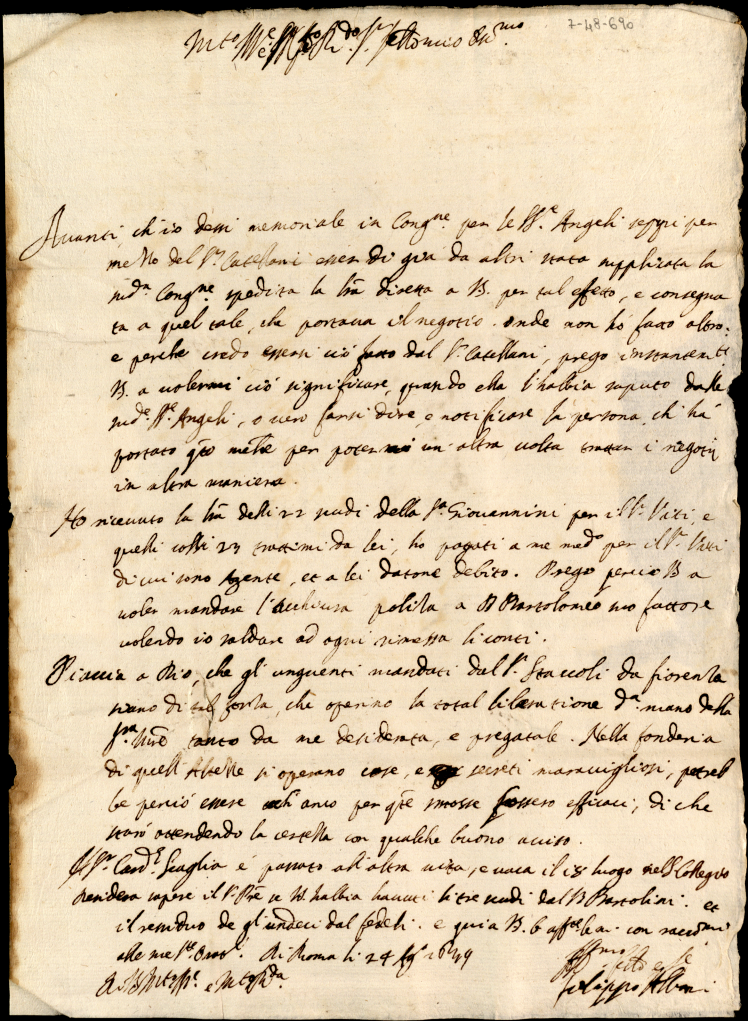 7-48-690
Avanti, ch'io dessi memoriale in Congne. per le SSre. Angeli seppi per
mezzo del Sr. Catellani esser di già da altri stata supplicata la
sudta. Congne. spedita la lra diretta a V.S. per tal effetto, e consegna
ta a quel tale, che portava il negotio. onde non hò fatto altro.
e perche credo essersi ciò fatto dal Sr. Catellani, prego instantemte
V.S. a volermi ciò significare, quando ella l'habbia saputo dalle
sude. SSre. Angeli, o vero farsi dire, e notificare la persona, ch'hà
portato qto per potermi un'altra volta trattar i negotij
in altra maniera.
Hò ricevuto la lra delli 22 scudi della Sra. Giovannini per il Sr. Viti, e
quelli colli 23 trattimi da lei, ho pagati a me medo per il Sr. Viti
di cui sono Agente, et a lei datone debito. Prego perciò V.S. a
voler mandare l'acchiusa polita a Bartolomeo suo fattore
volendo io saldare ad ogni rimessa li conti.
Piaccia a Dio, che gli unguenti mandati dal Sr. Staccoli da fiorenza
siano di tal forza, che operino la total liberatione da. mano della
Sra. Mre tanto da me desiderata, e pregatale. Nella fonderia
di quell'Altezze si operano cose, e secreti maravigliosi, potreb
be perciò essere ch'anco per qte fossero efficaci, di che
starò attendendo la certezza con qualche buono aviso.
Il Sr. Cardl. Scaglia è passato all'altra vita, e vaca il 18 luogo nell Collegio
Desidera sapere il Sr. Pre se V.S. habbia havuti li tre scudi dal Bartolini. et
il residuo de gl'undeci dal fedeli. e qui a V.S. b. affte. le ma. con
alle sue Ste. Orat. Di Roma li 24 1649
Di V.S. Mto Illre. e Mto Rda
Filippo Albani